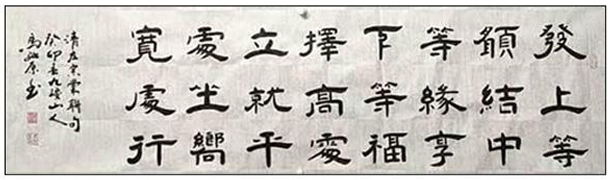 發上等
願結中
等緣享
下等福
擇高處
立就平
處坐嚮
寬處行
清左宗棠聯句
癸卯春九山人